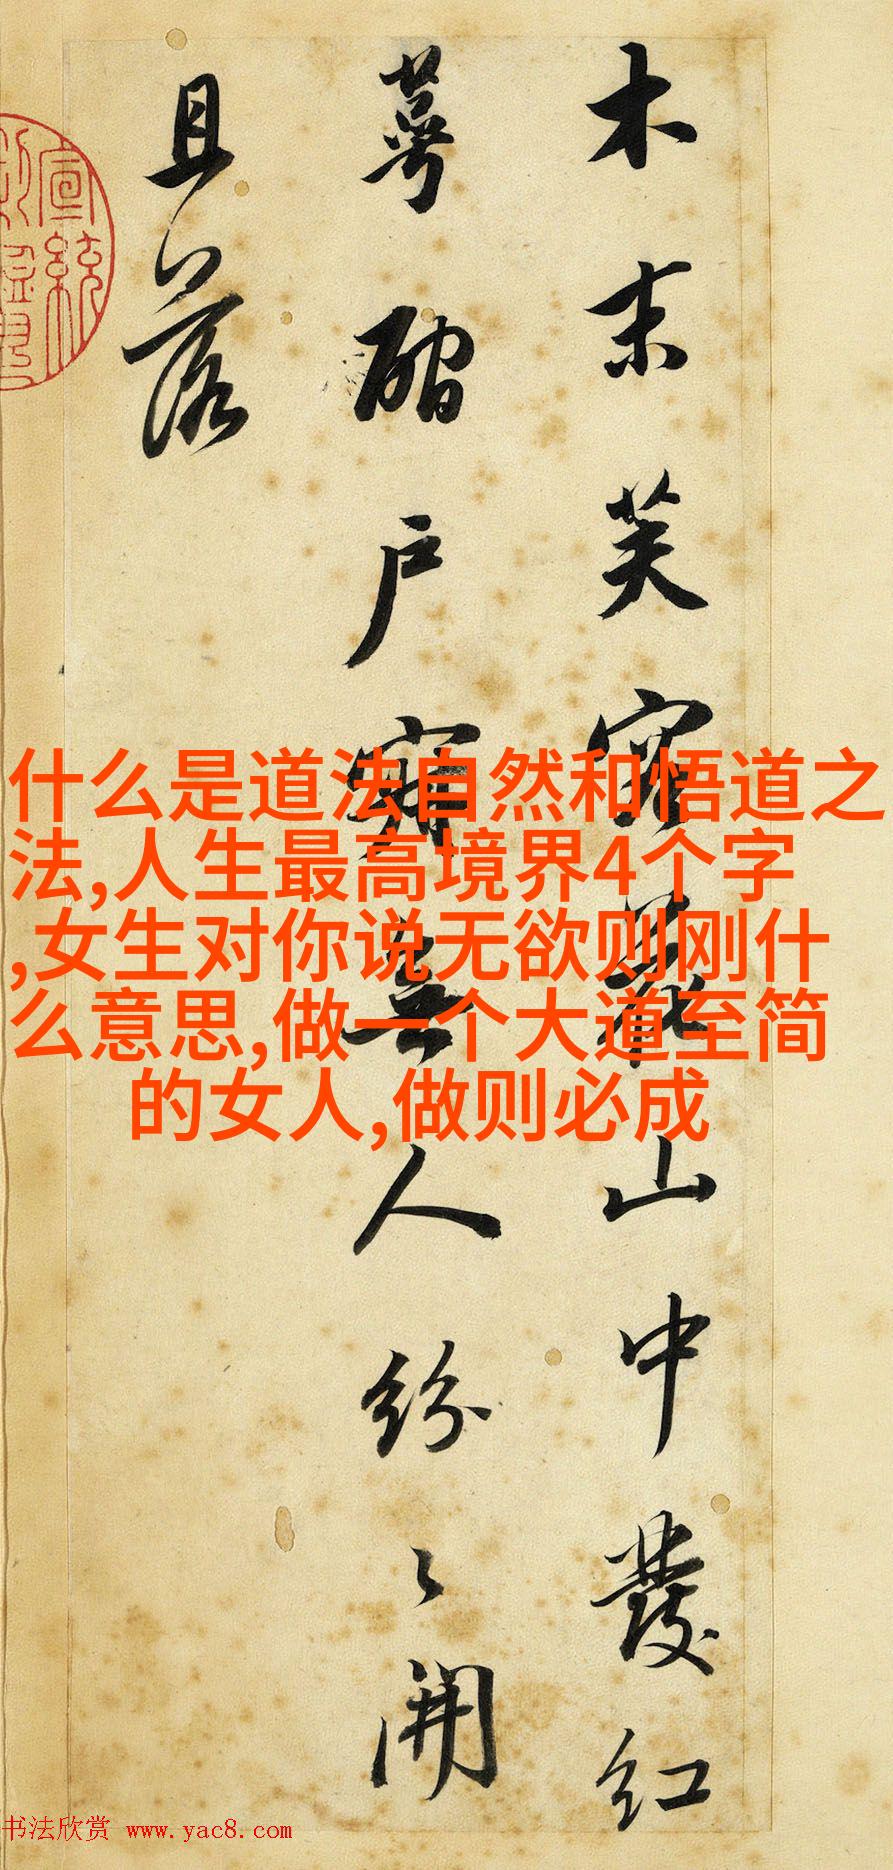 木末芙蓉花山中發紅
萼磵戶寂無人紛々開
且落
宣統
什么是道法自然和悟道之
法,人生最高境界4个字
,女生对你说无欲则刚什
么意思,做一个大道至简
的女人,做则必成
书法欣赏 www.yac8.com